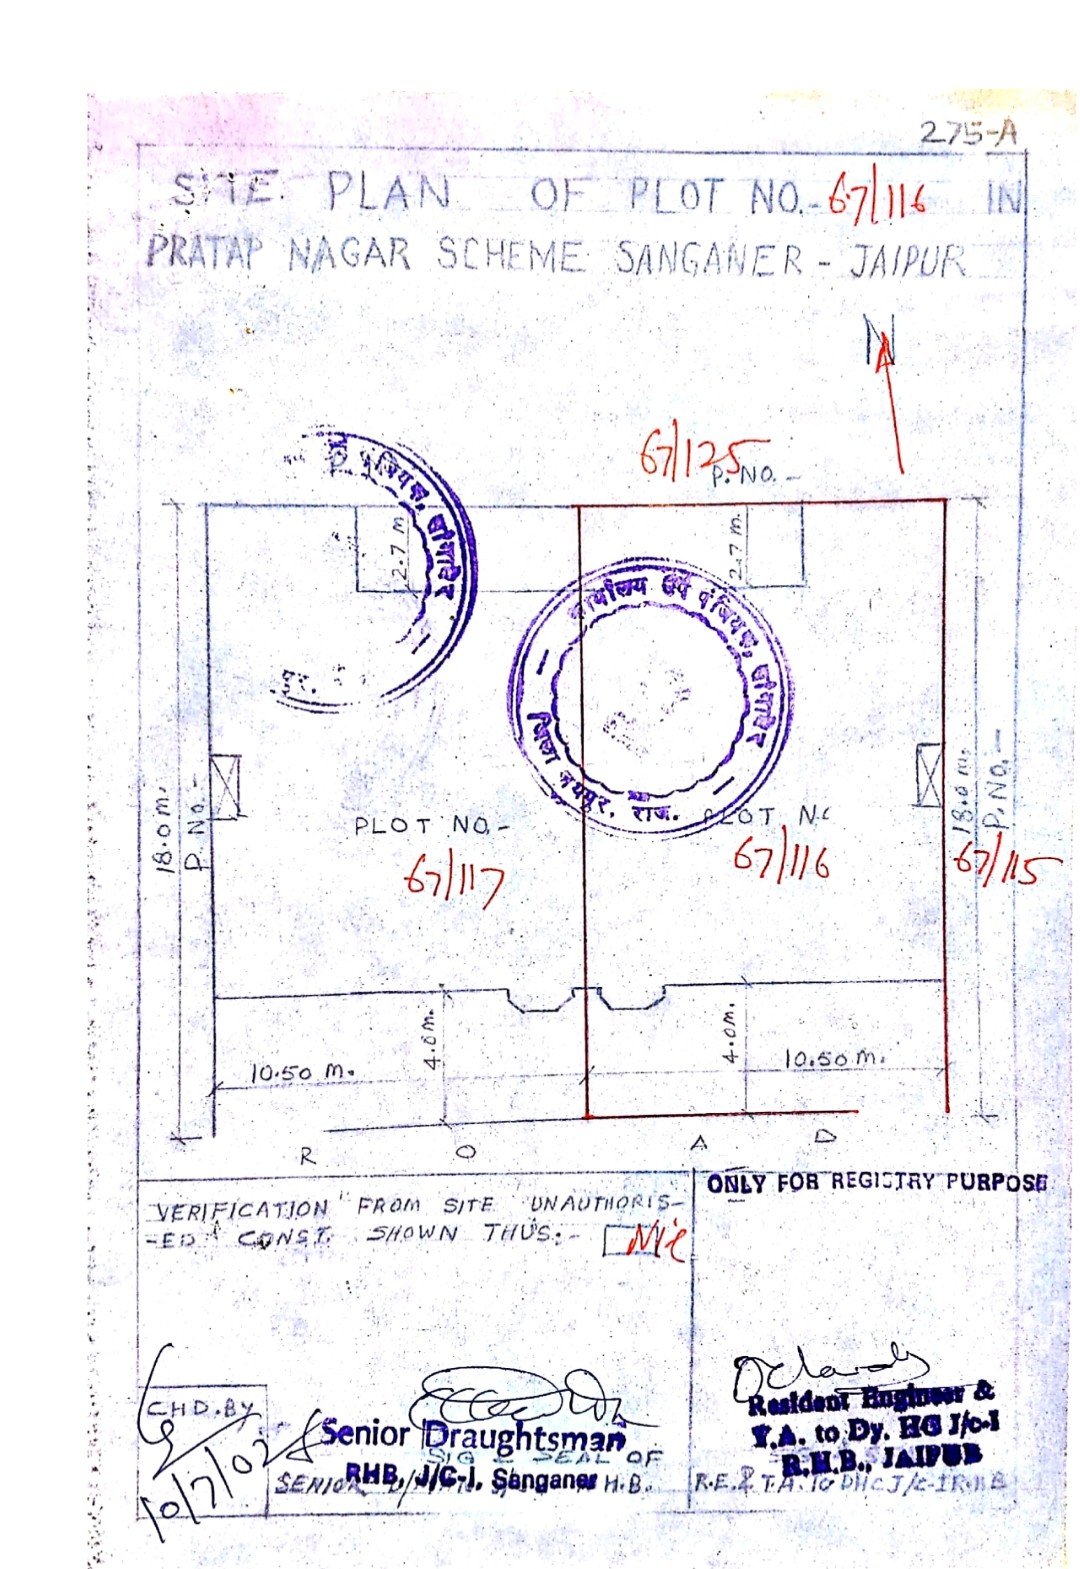 275-A
SITE PLAN OF PLOT NO.-67/116 IN
PRATAP NAGAR SCHEME SANGANER - JAIPUR
N
67/125
P. NO. -
पंजियक, सांगानेर
2.7 m
2.7 m.
कार्यालय उप पंजियक, सांगानेर
जिला जयपुर, राज.
18.0 m.
P. NO.-
18.0 m.
P. NO. -
PLOT NO.-
67/117
PLOT NO
67/116
67/115
4.0m.
4.0m.
10.50 m.
10.50 m.
R O A D
ONLY FOR REGISTRY PURPOSE
VERIFICATION FROM SITE UNAUTHORIS-
-ED CONST. SHOWN THUS:- Nil
CHD.BY
10/7/02
Senior Draughtsman
SIG & SEAL OF
RHB, J/C-I, Sanganer
SENIOR H.B.
Resident Engineer &
T.A. to Dy. HC J/c-I
R.H.B., JAIPUR
R.E. & T.A. TO DHC J/C-I R.H.B